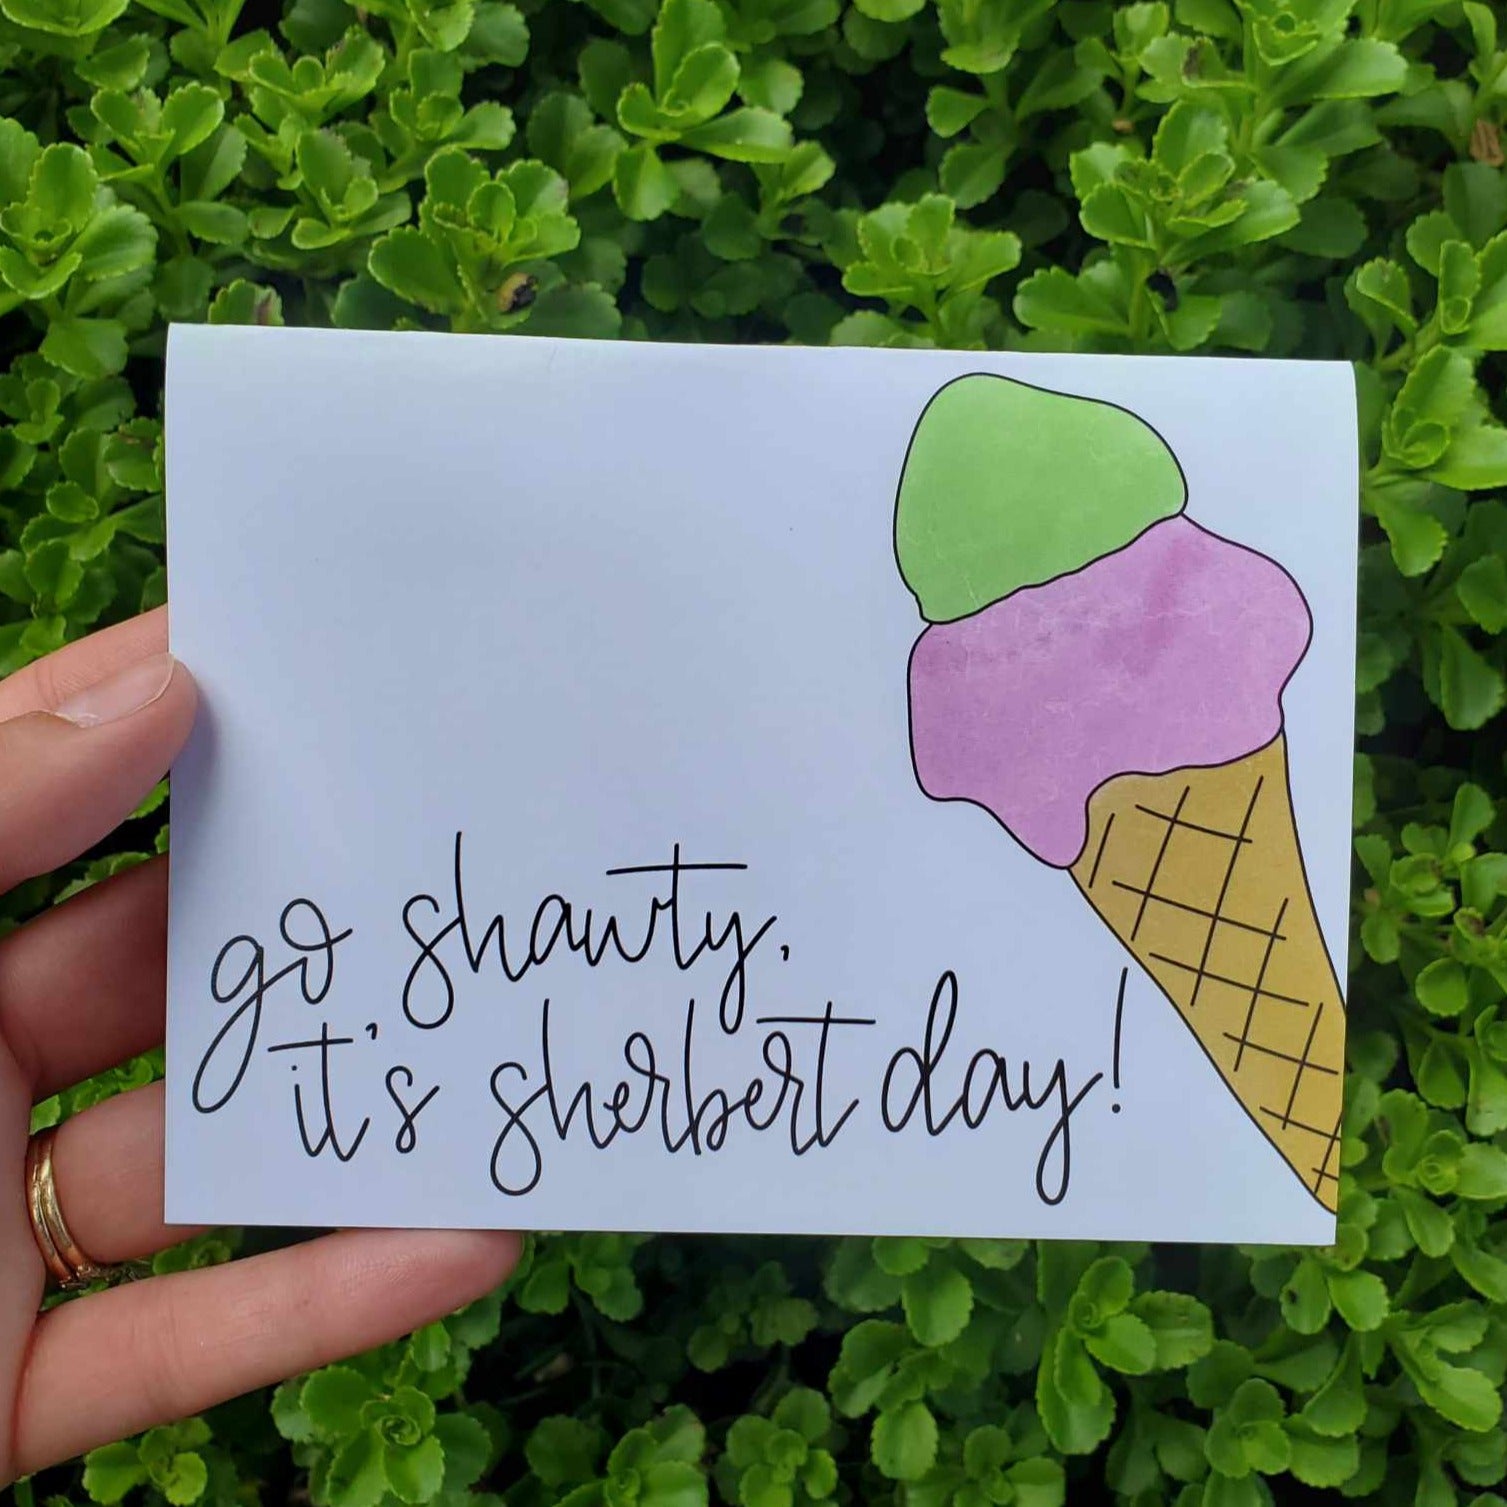 go shawty,
it's sherbert day!